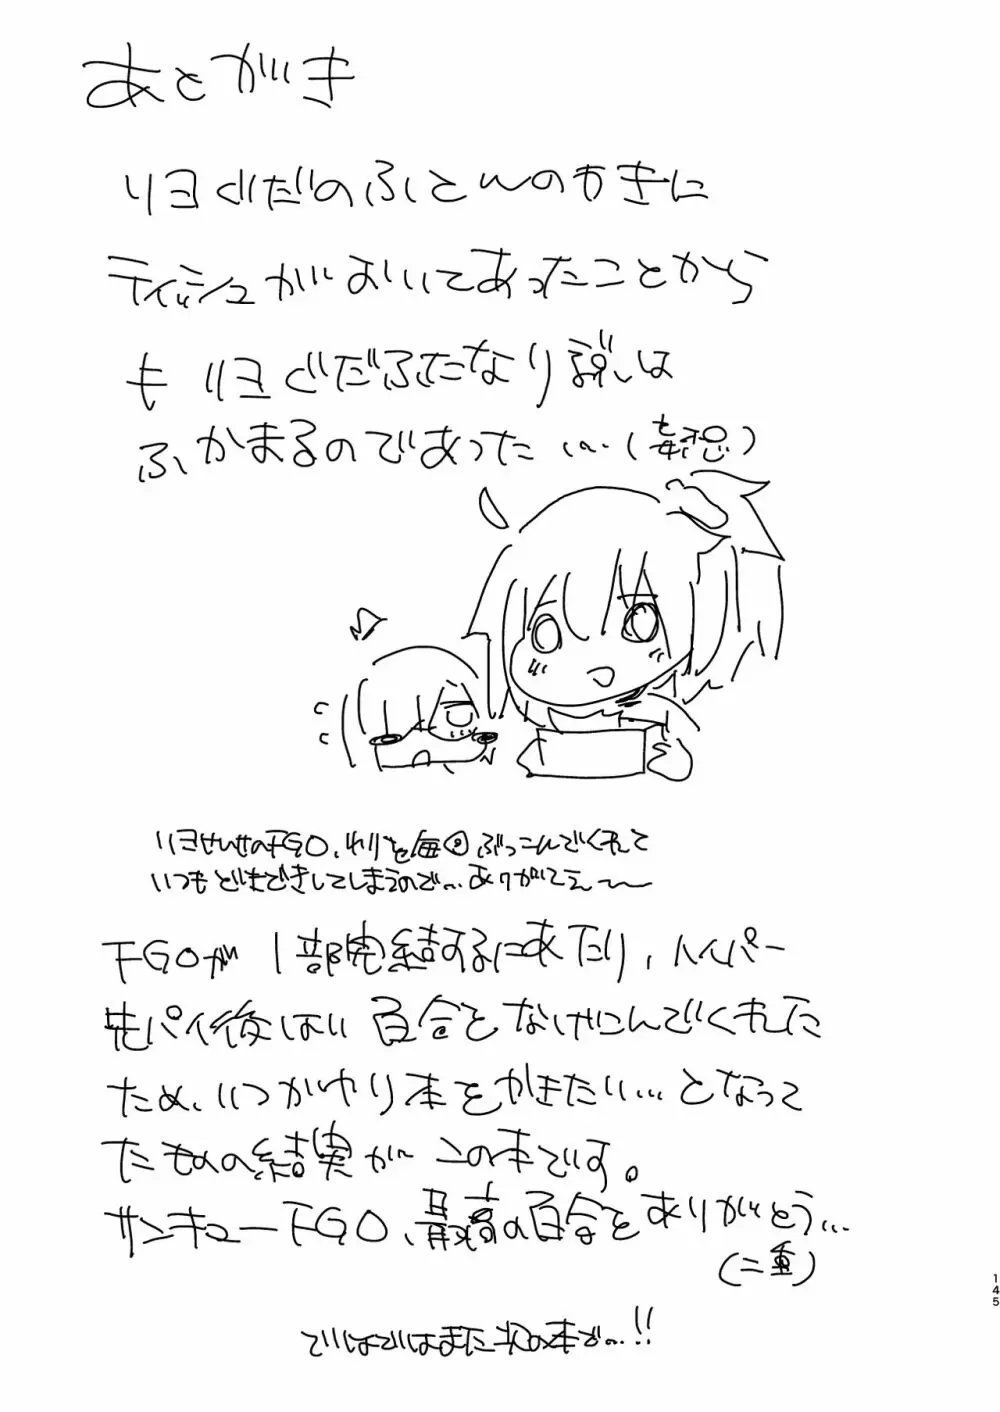 あとがき
リヨぐだのふとんのわきに
ティッシュがおいてあったことから
も リヨぐだふたなり説は
ふかまるのであった…(妄想)
リヨせんせのFGO、わりと毎回ぶっこんでくれて
いつもどきどきしてしまうので…ありがてえ〜〜
FGOが1部完結するにあたり、ハイパー
先パイ後はい百合をなげこんでくれた
ため、いつかやり本をかきたい…となって
たものの結実がこの本です。
サンキューFGO、最高の百合をありがとう…
(二重)
ではではまた次の本で…!!
145